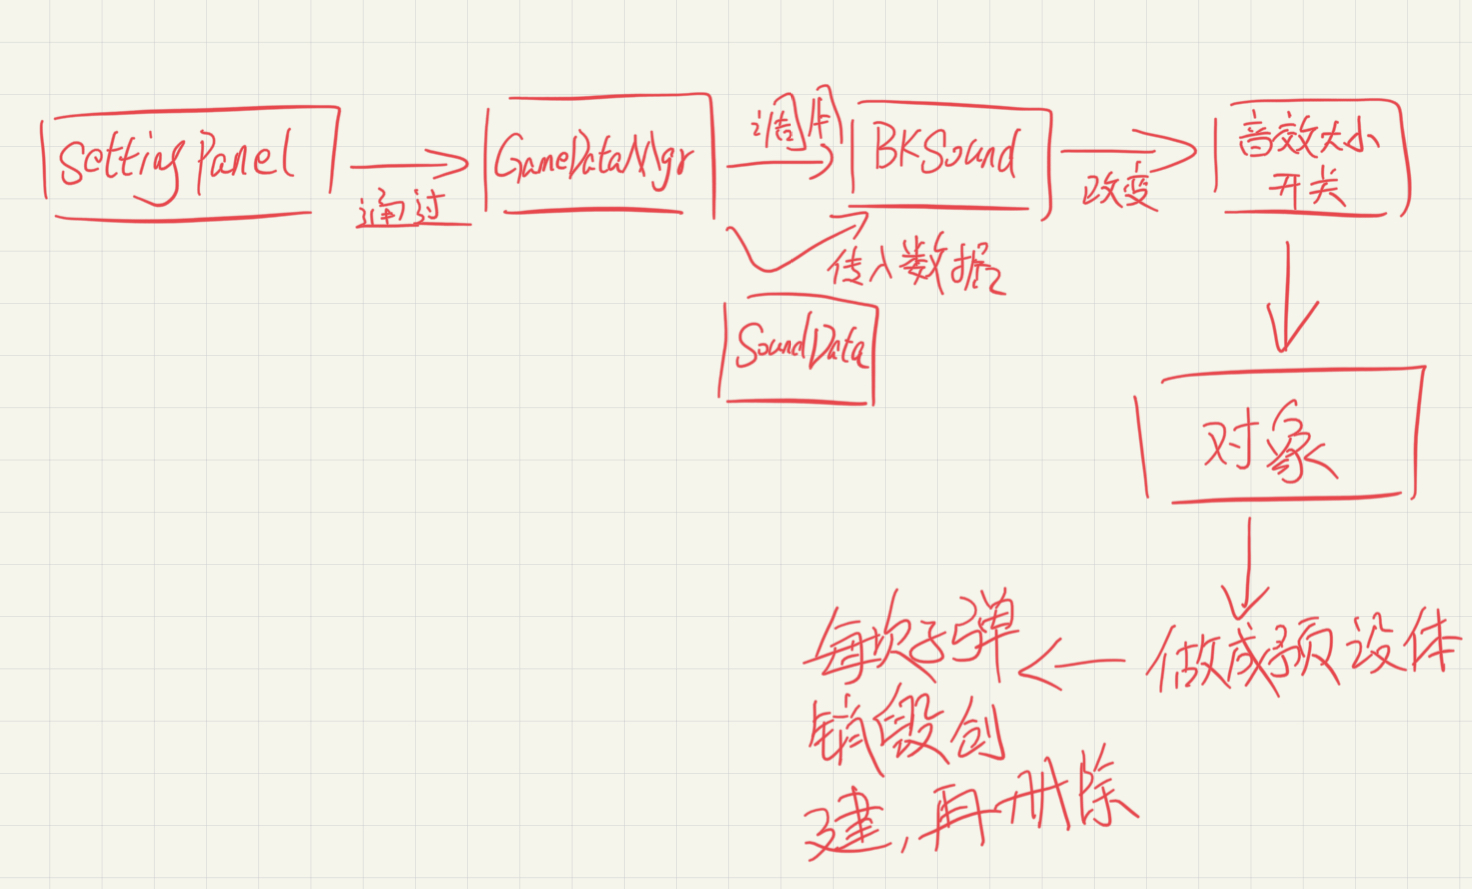 SettingPanel
通过
GameDataMgr
调用
BKSound
改变
音效大小
开关
传入数据
SoundData
对象
做成预设体
每次子弹
销毁创
建,再删除